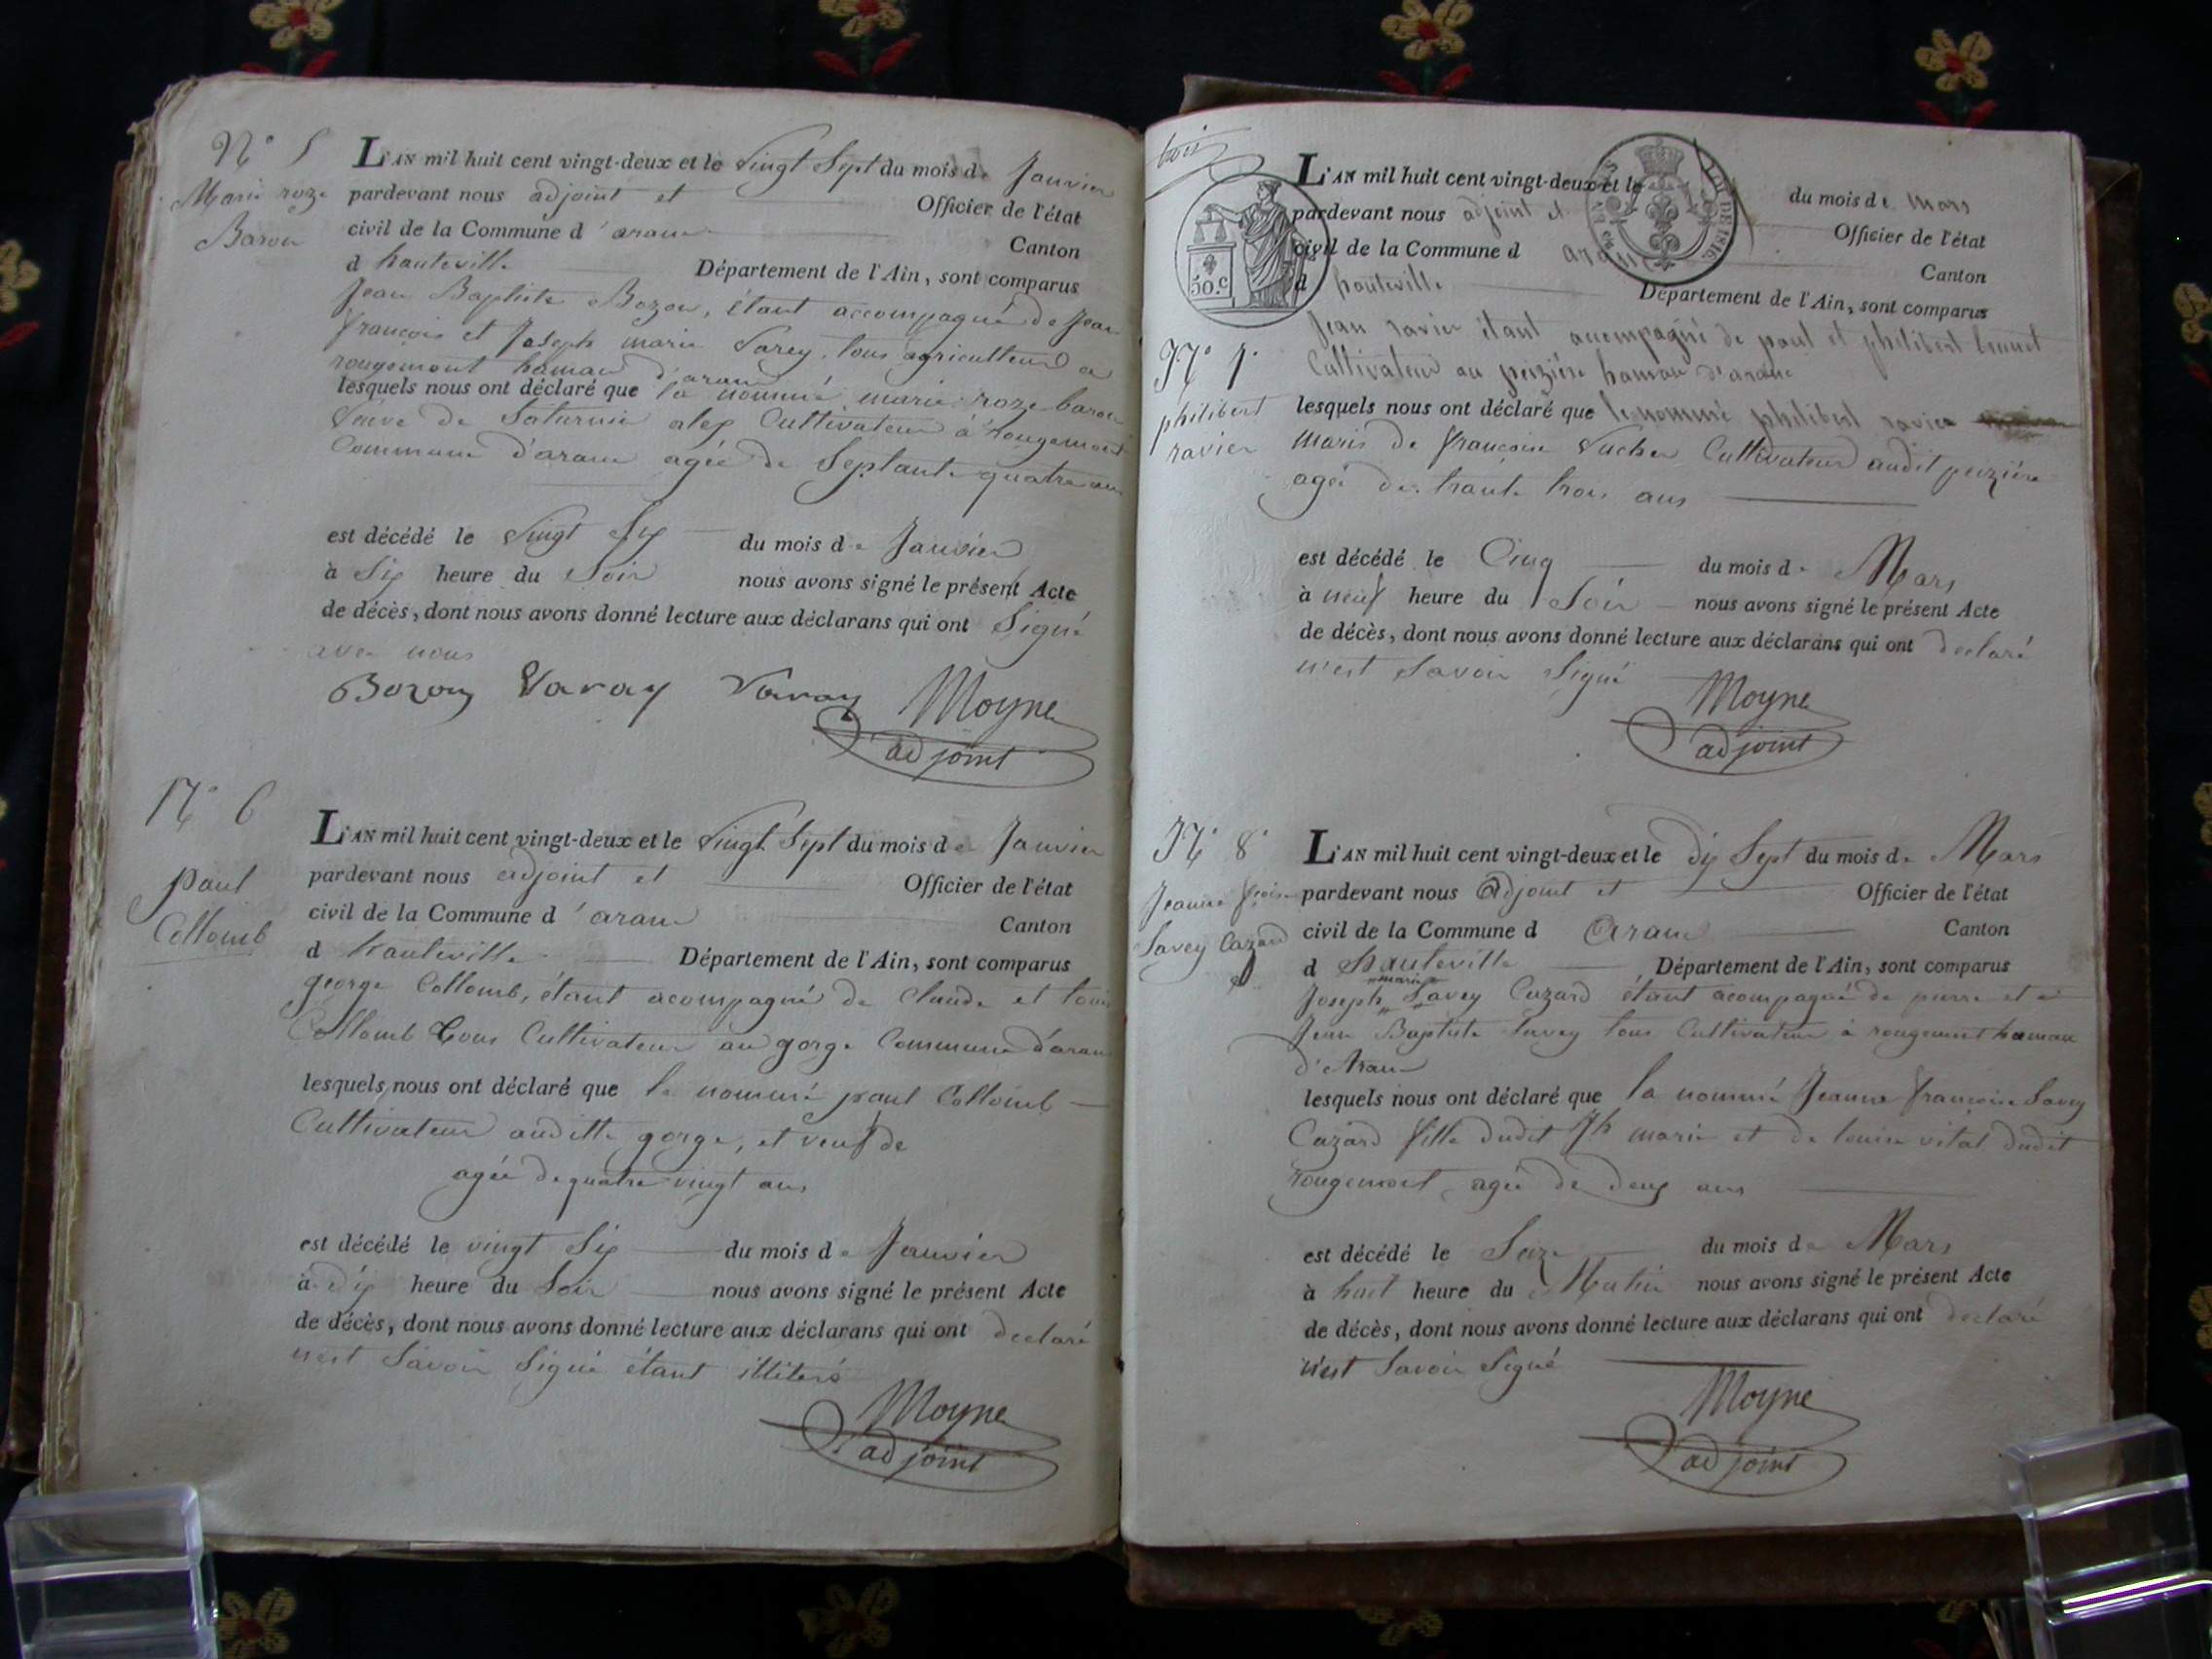 N° 5
Marie roze
Baron
L'AN mil huit cent vingt-deux et le vingt Sept du mois de Janvier
pardevant nous adjoint et Officier de l'état
civil de la Commune d'aranc Canton
d hauteville Département de l'Ain, sont comparus
Jean Baptiste Bozon, étant accompagné de Jean
françois et Joseph marie Savey, tous agriculteur a
rougemont hamau d'aranc
lesquels nous ont déclaré que la nommé marie roze baron
veuve de Saturnin alex Cultivateur à rougemont
Commune d'aranc agée de Septante quatre ans
est décédé le vingt Six du mois de Janvier
à Six heure du Soir nous avons signé le présent Acte
de décès, dont nous avons donné lecture aux déclarans qui ont Signé
avec nous
Bozon Varay Varay Moyne
adjoint
N° 6
paul
Collomb
L'AN mil huit cent vingt-deux et le vingt Sept du mois de Janvier
pardevant nous adjoint et Officier de l'état
civil de la Commune d'aranc Canton
d hauteville Département de l'Ain, sont comparus
george Collomb, étant acompagné de Claude et louis
Collomb tous Cultivateur au gorge Commune d'aranc
lesquels nous ont déclaré que le nommé paul Collomb
Cultivateur auditte gorge, et veuf de
agée de quatre vingt ans
est décédé le vingt Six du mois de Janvier
à dix heure du Soir nous avons signé le présent Acte
de décès, dont nous avons donné lecture aux déclarans qui ont declaré
n'est Savoir Signé étant illiteré
Moyne
adjoint
trois
50.c
L'AN mil huit cent vingt-deux et le du mois de Mars
pardevant nous adjoint et Officier de l'état
civil de la Commune d aranc Canton
d hauteville Département de l'Ain, sont comparus
Jean ravier étant accompagné de paul et philibert
Cultivateur au peizière hamau d'aranc
N° 7
philibert
ravier
lesquels nous ont déclaré que le nommé philibert ravier
maris de françoise Cultivateur audit peizière
agée de trante trois ans
est décédé le Cinq du mois de Mars
à neuf heure du Soir nous avons signé le présent Acte
de décès, dont nous avons donné lecture aux déclarans qui ont declaré
n'est Savoir Signé
Moyne
adjoint
N° 8
Jeanne fçoise
Savey Cazard
L'AN mil huit cent vingt-deux et le dix Sept du mois de Mars
pardevant nous Adjoint et Officier de l'état
civil de la Commune d Aranc Canton
d hauteville Département de l'Ain, sont comparus
marie
Joseph Savey Cuzard étant acompagné de pierre et
Jean Baptiste Savey tous Cultivateur à rougemont hamau
d'Aranc
lesquels nous ont déclaré que la nommé Jeanne françoise Savey
Cazard fille dudit Jh marie et de louise vital dudit
rougemont agée de deux ans
est décédé le Seize du mois de Mars
à huit heure du Matin nous avons signé le présent Acte
de décès, dont nous avons donné lecture aux déclarans qui ont declaré
n'est Savoir Signé
Moyne
adjoint